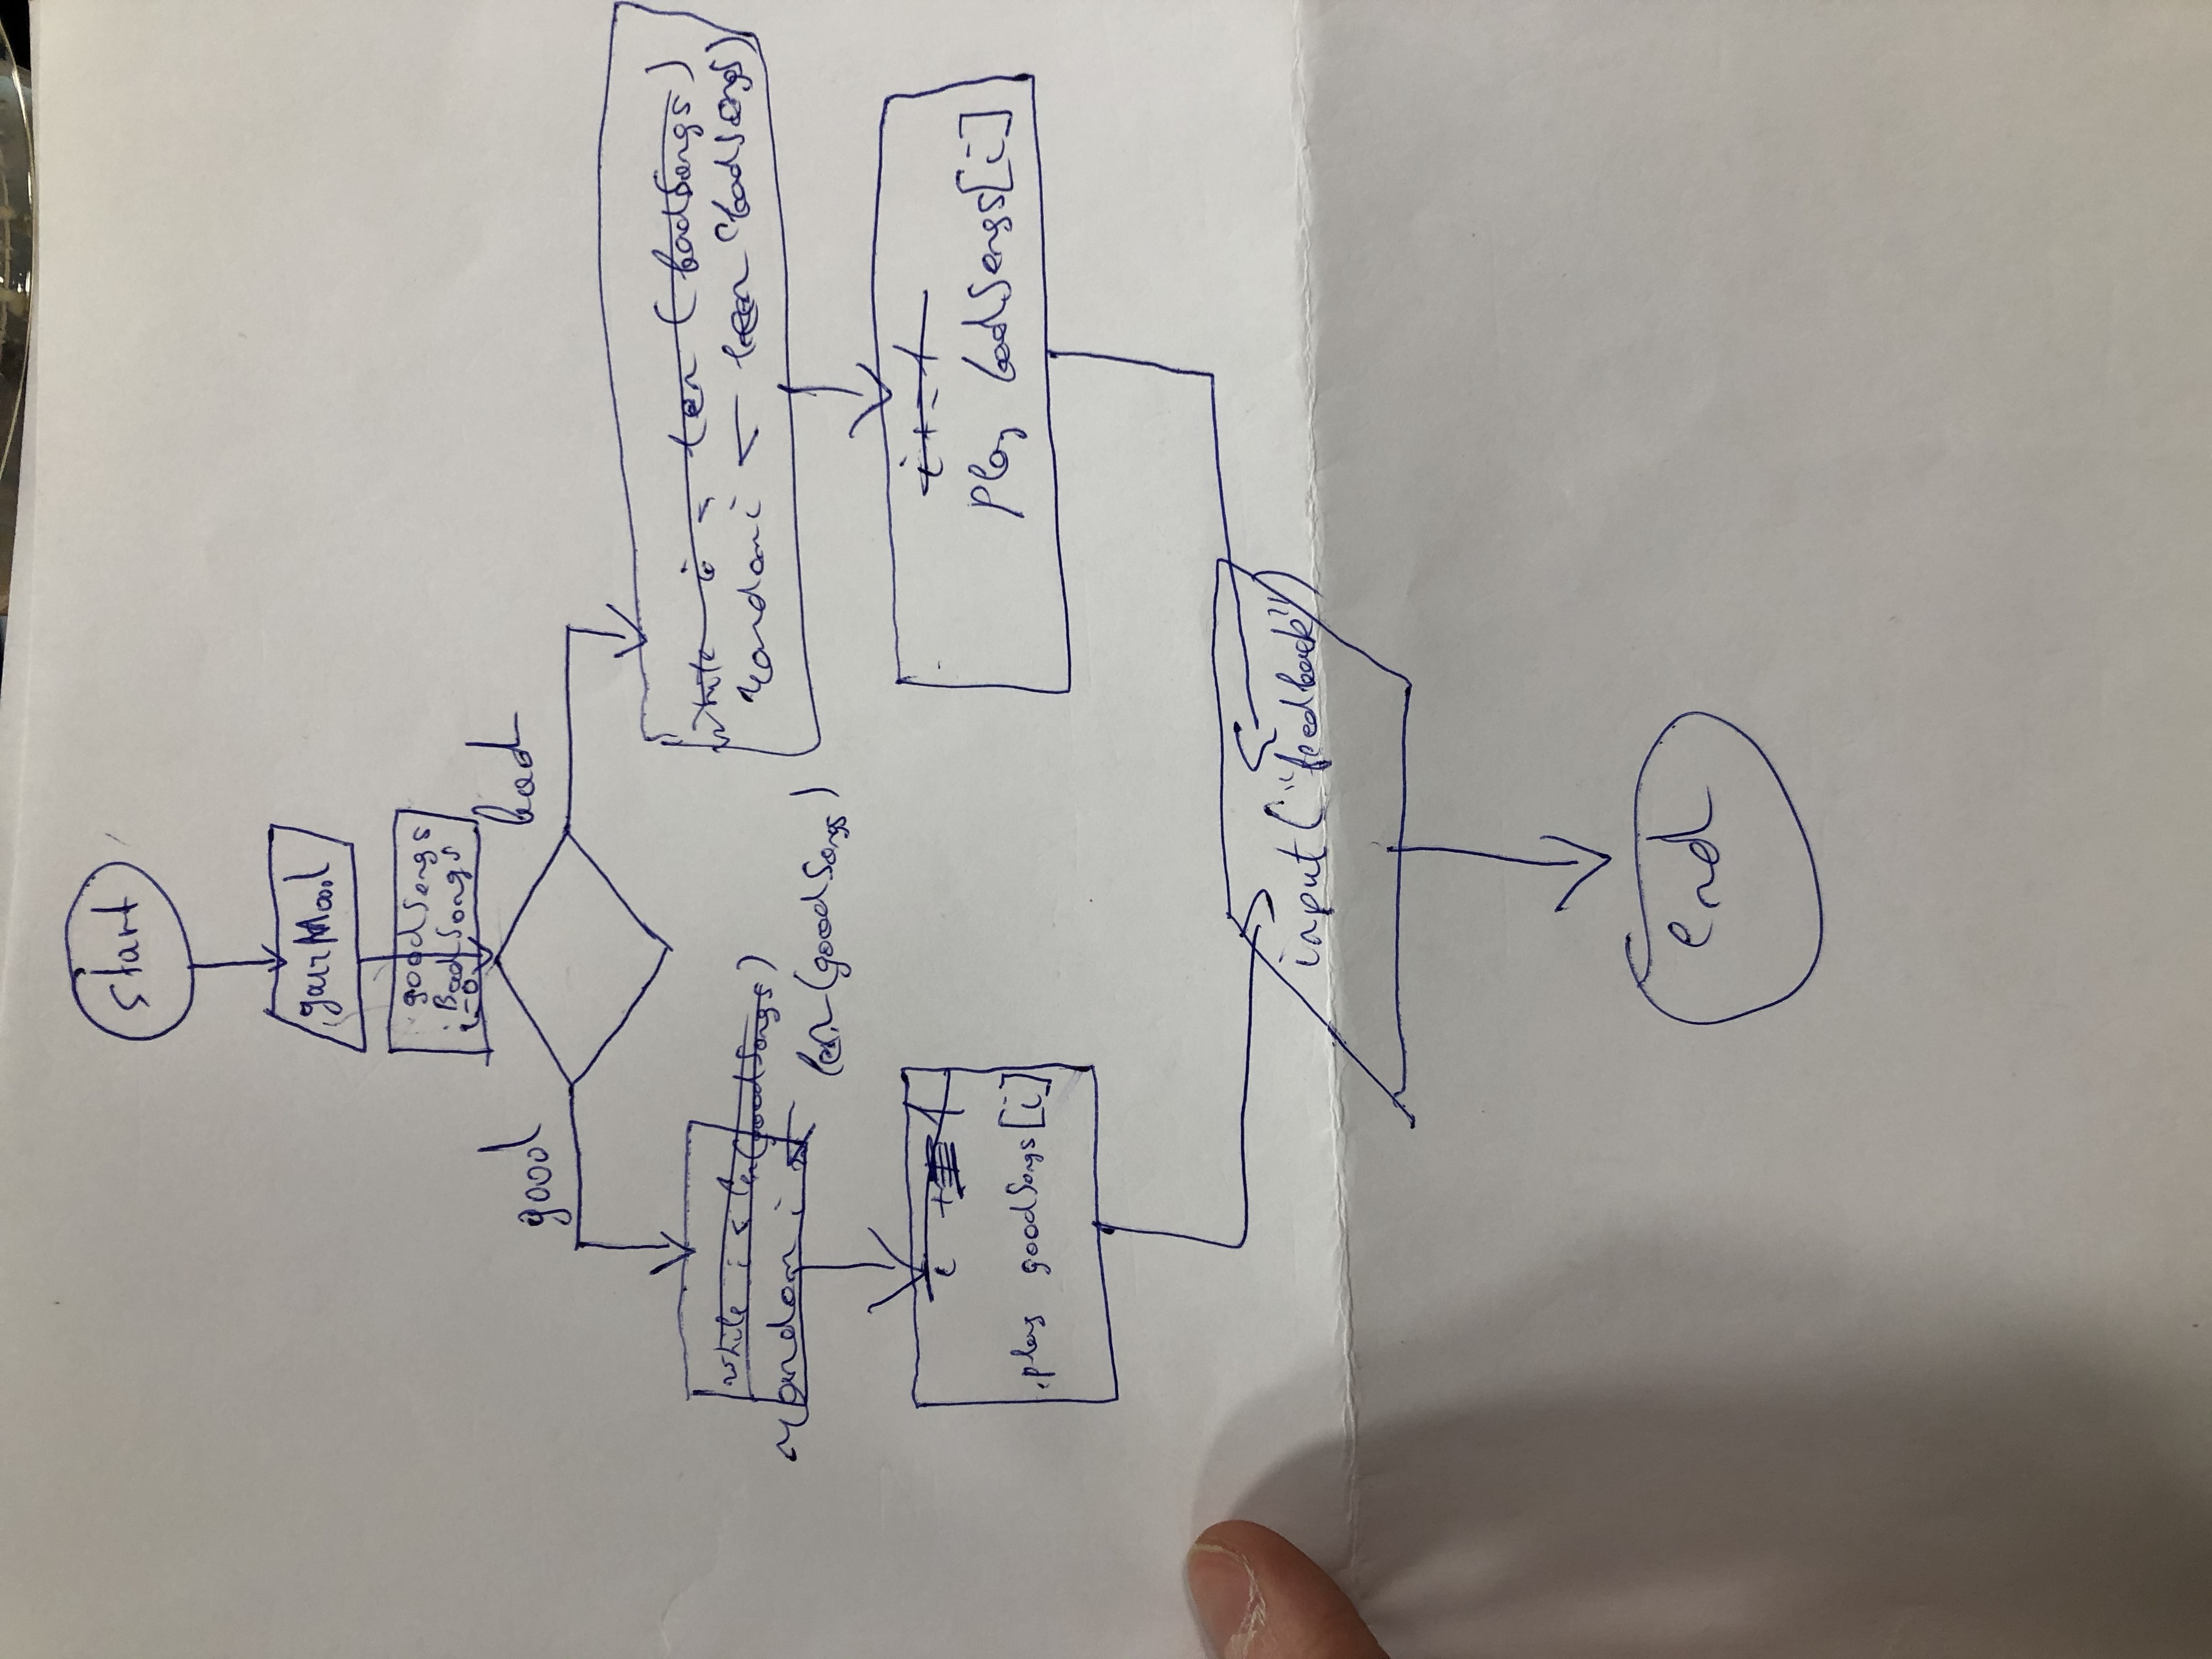 start
yourMood
goodSongs
BadSongs
i=0
good
bad
while i < len(goodSongs)
random i <
len(goodSongs)
while i < len (badSongs)
random i < len (badSongs)
i + 1
play goodSongs[i]
i+=1
play badSongs[i]
input("feedback")
end